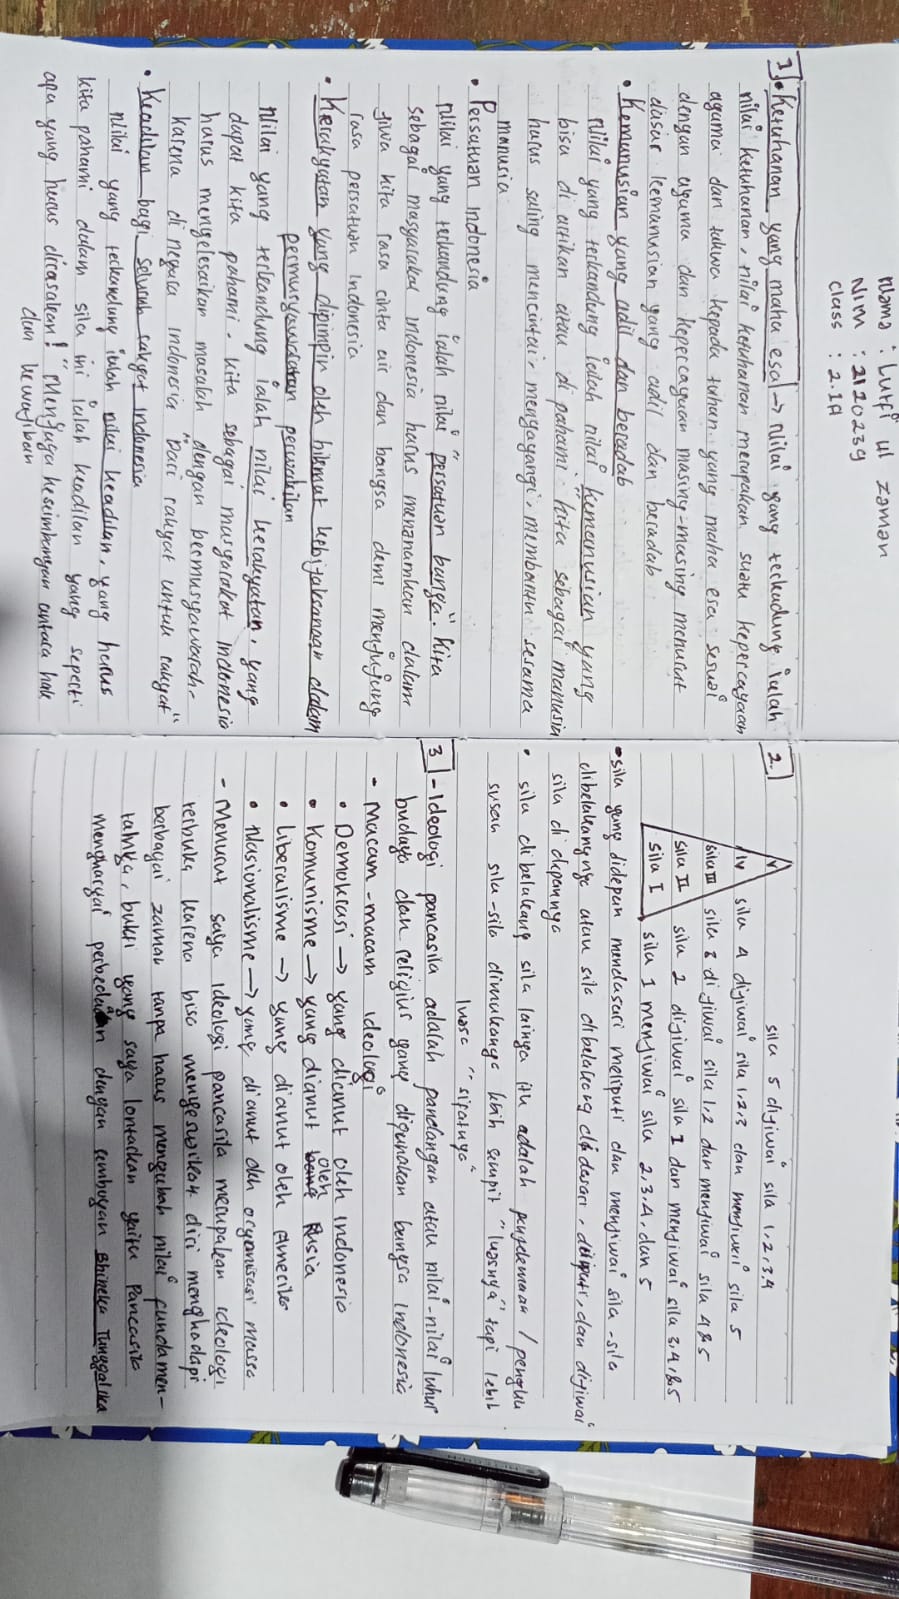 Nama : Lutfi ul zaman
NIM : 2120239
Class : 2.1A
1. • Ketuhanan yang maha esa → Nilai yang terkadung ialah
nilai ketuhanan, nilai ketuhanan merupakan suatu kepercayaan
agama dan takwa kepada tuhan yang maha esa sesuai
dengan agama dan kepercayaan masing-masing menurut
dasar kemanusian yang adil dan beradab
• Kemanusian yang adil dan beradab
Nilai yang terkandung ialah nilai kemanusian yang
bisa di artikan atau di pahami "kita sebagai manusia
harus saling mencintai, mengayangi, membantu sesama
manusia
• Persatuan Indonesia
Nilai yang terkandung ialah nilai "persatuan banga". Kita
sebagai masyarakat indonesia harus menanamkan dalam
jiwa kita rasa cinta air dan bangsa demi menjujung
rasa persatuan Indonesia
• Kerakyatan yang dipimpin oleh hikmat kebijaksanaan dalam
permusyawaratan perwakilan
Nilai yang terkandung ialah nilai kerakyatan, yang
dapat kita pahami. kita sebagai masyarakat indonesia
harus mengelesaikan masalah dengan bermusyawarah.
karena di negara indonesia "Dari rakyat untuk rakyat"
• Keadilan bagi seluruh rakyat indonesia
Nilai yang terkandung ialah nilai keadilan, yang harus
kita pahami dalam sila ini ialah keadilan yang seperti
apa yang harus dirasakan! "Menjaga keseimbangan antara hak
dan kewajiban
2.
V
IV
Sila III
Sila II
Sila I
sila 5 dijiwai sila 1,2,3,4
sila 4 dijiwai sila 1,2,3 dan menjiwai sila 5
sila 3 di jiwai sila 1,2 dan menjiwai sila 4&5
sila 2 dijiwai sila I dan menjiwai sila 3,4,&5
sila I menjiwai sila 2,3,4, dan 5
• sila yang didepan mendasari meliputi dan menjiwai sila-sila
dibelakangnya atau sila dibelakang didasari, diliputi, dan dijiwai
sila di depannya
• sila dibelakang sila lainya itu adalah penjelemaan / penghu
susan sila-sila dimukanya lebih sempit "luasnya" tapi lebih
luasa "sifatnya"
3 - Ideologi pancasila adalah pandangan atau nilai-nilai luhur
budaya dan religius yang digunakan bangsa indonesia
- Macam-macam ideologi
• Demokrasi → yang dianut oleh indonesia
• Komunisme → yang dianut oleh Rusia
• Liberalisme → yang dianut oleh Amerika
• Nasionalisme → yang dianut oleh organisasi massa
- Menurut saya ideologi pancasila merupakan ideologi
terbuka karena bisa mengesuaikan diri menghadapi
berbagai zaman tanpa harus mengubah nilai fundamen-
talnya, bukti yang saya lontarkan yaitu Pancasila
menghargai perbedaan dengan semboyan Bhineka Tunggal ika